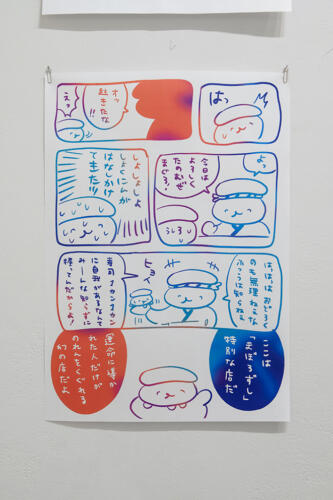 はっ
オッ
起きたな
!!
えっ
よっ
今日は
よろしく
たのむぜ
まぐろ!
しょしょしょ
しょくにんが
はなしかけ
てきた!!!
はっはっは おどろく
のも無理ねぇな
ふつうは知らねぇ
ヒョイ
寿司1カン1カン
に自我があるなんて
みーんな知らずに
握ってんだからよ!
ここは
「まぼろずし」
特別な店だ
運命に導か
れた人だけが
のれんをくぐれる
幻の店だよ